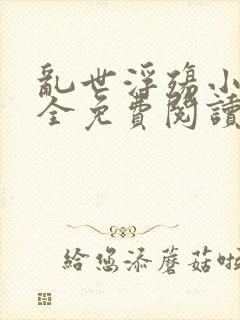 亂世浮殤小
全免費閱讀
給您添蘑菇啦